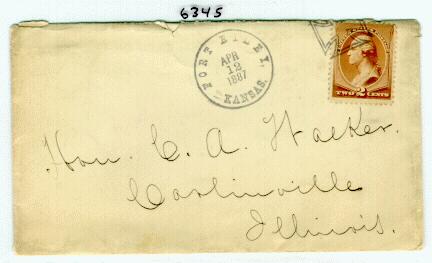 6345
FORT RILEY,
APR
12
1887
KANSAS.
TWO 2 CENTS
Hon. C. A. Walker.
Carlinville
Illinois.